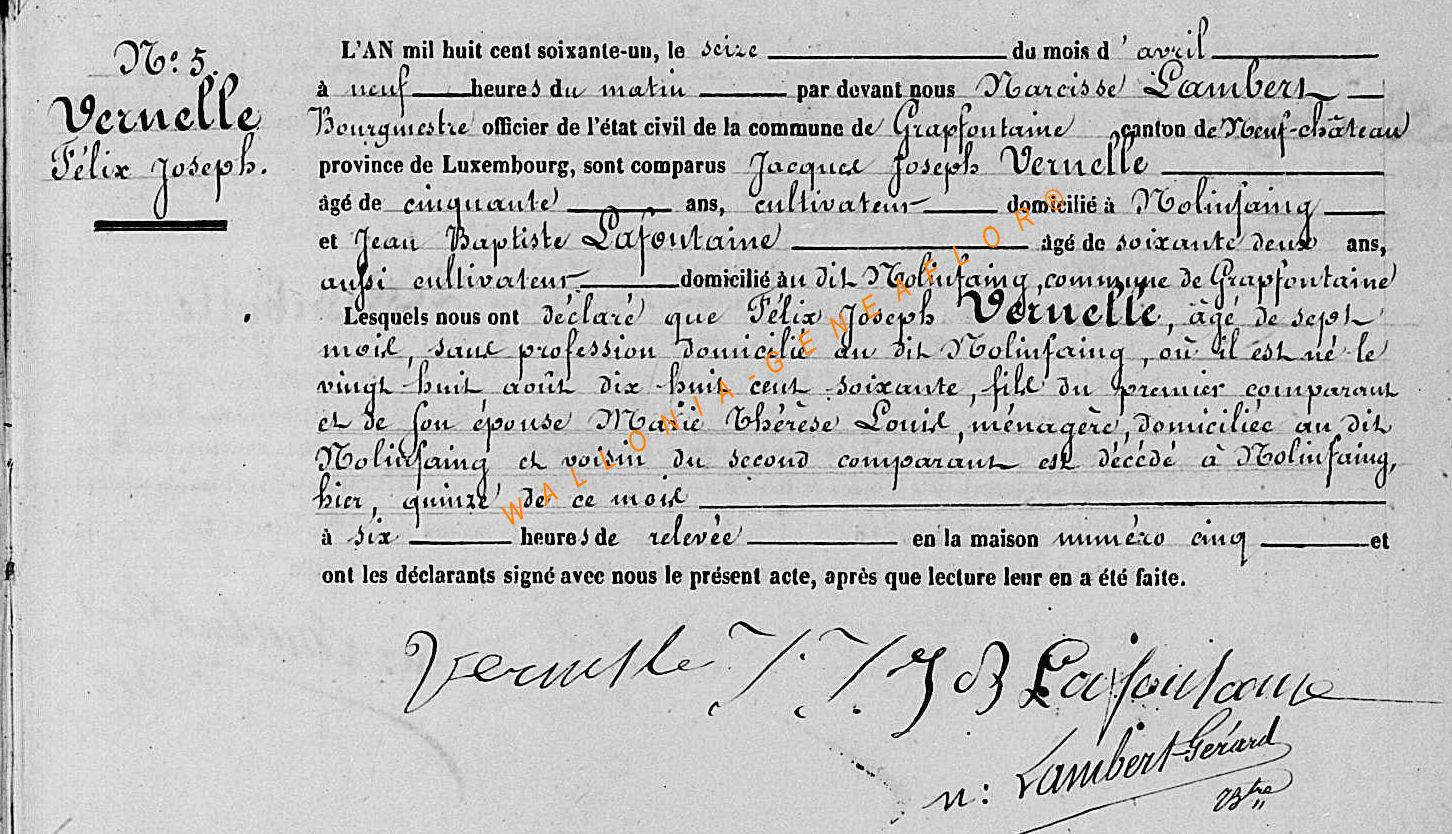 N.º 5.
Vernelle
Félix Joseph.
L'AN mil huit cent soixante-un, le seize du mois d'avril
à neuf heures du matin par devant nous Narcisse Lambert
Bourgmestre officier de l'état civil de la commune de Grapfontaine canton de Neuf-château
province de Luxembourg, sont comparus Jacques Joseph Vernelle
âgé de cinquante ans, cultivateur domicilié à Nolinfaing
et Jean Baptiste Lafontaine âgé de soixante deux ans,
aussi cultivateur domicilié au dit Nolinfaing, commune de Grapfontaine
Lesquels nous ont déclaré que Félix Joseph Vernelle, âgé de sept
mois, sans profession domicilié au dit Nolinfaing, où il est né le
vingt-huit août dix-huit cent soixante, fils du premier comparant
et de son épouse Marie Thérèse Louis, ménagère, domiciliée au dit
Nolinfaing et voisin du second comparant est décédé à Nolinfaing,
hier, quinze de ce mois
à six heures de relevée en la maison numéro cinq et
ont les déclarants signé avec nous le présent acte, après que lecture leur en a été faite.
Vernelle J. J. J B Lafontaine
n: Lambert-Gérard
Btre
WALLONIA-GENEAFLOR®